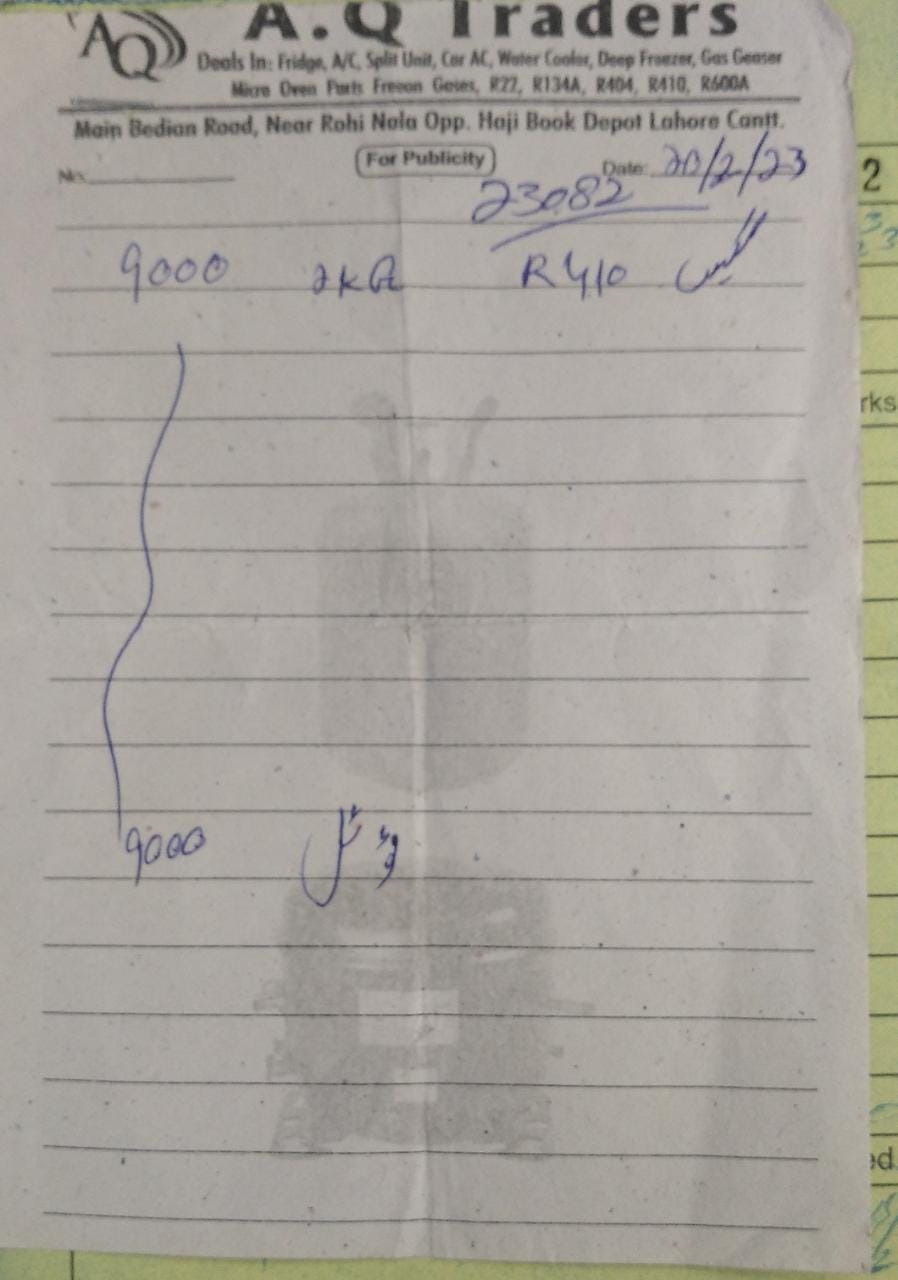 AQ
A.Q Traders
Deals In: Fridge, A/C, Split Unit, Car AC, Water Cooler, Deep Freezer, Gas Geaser
Micro Oven Parts Freeon Gases, R22, R134A, R404, R410, R600A
Main Bedian Road, Near Rohi Nala Opp. Haji Book Depot Lahore Cantt.
For Publicity
No. Date: 20/2/23
23082
9000 2kG R410 گیس
9000
2
rks
ed